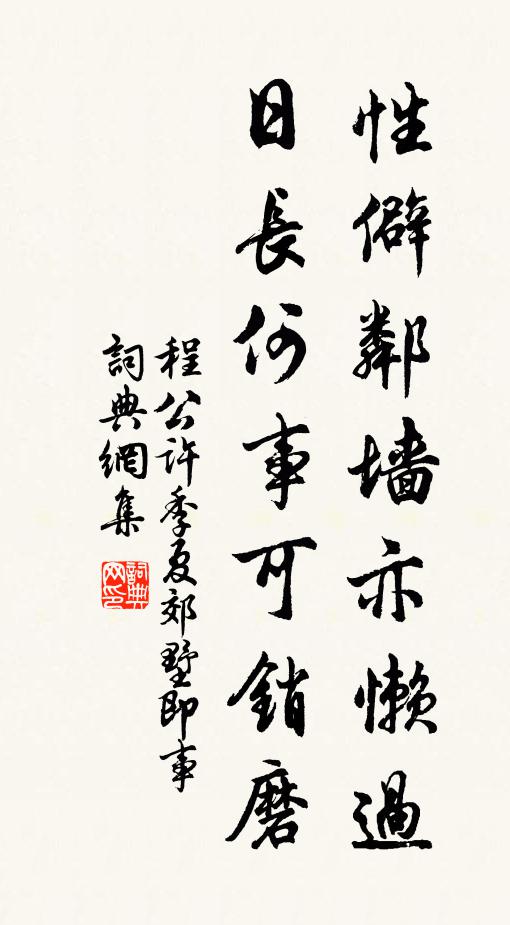 性僻鄰墙亦懒過
日長何事可銷磨
程公許季夏郊墅即事
詞典網集
詞典网印